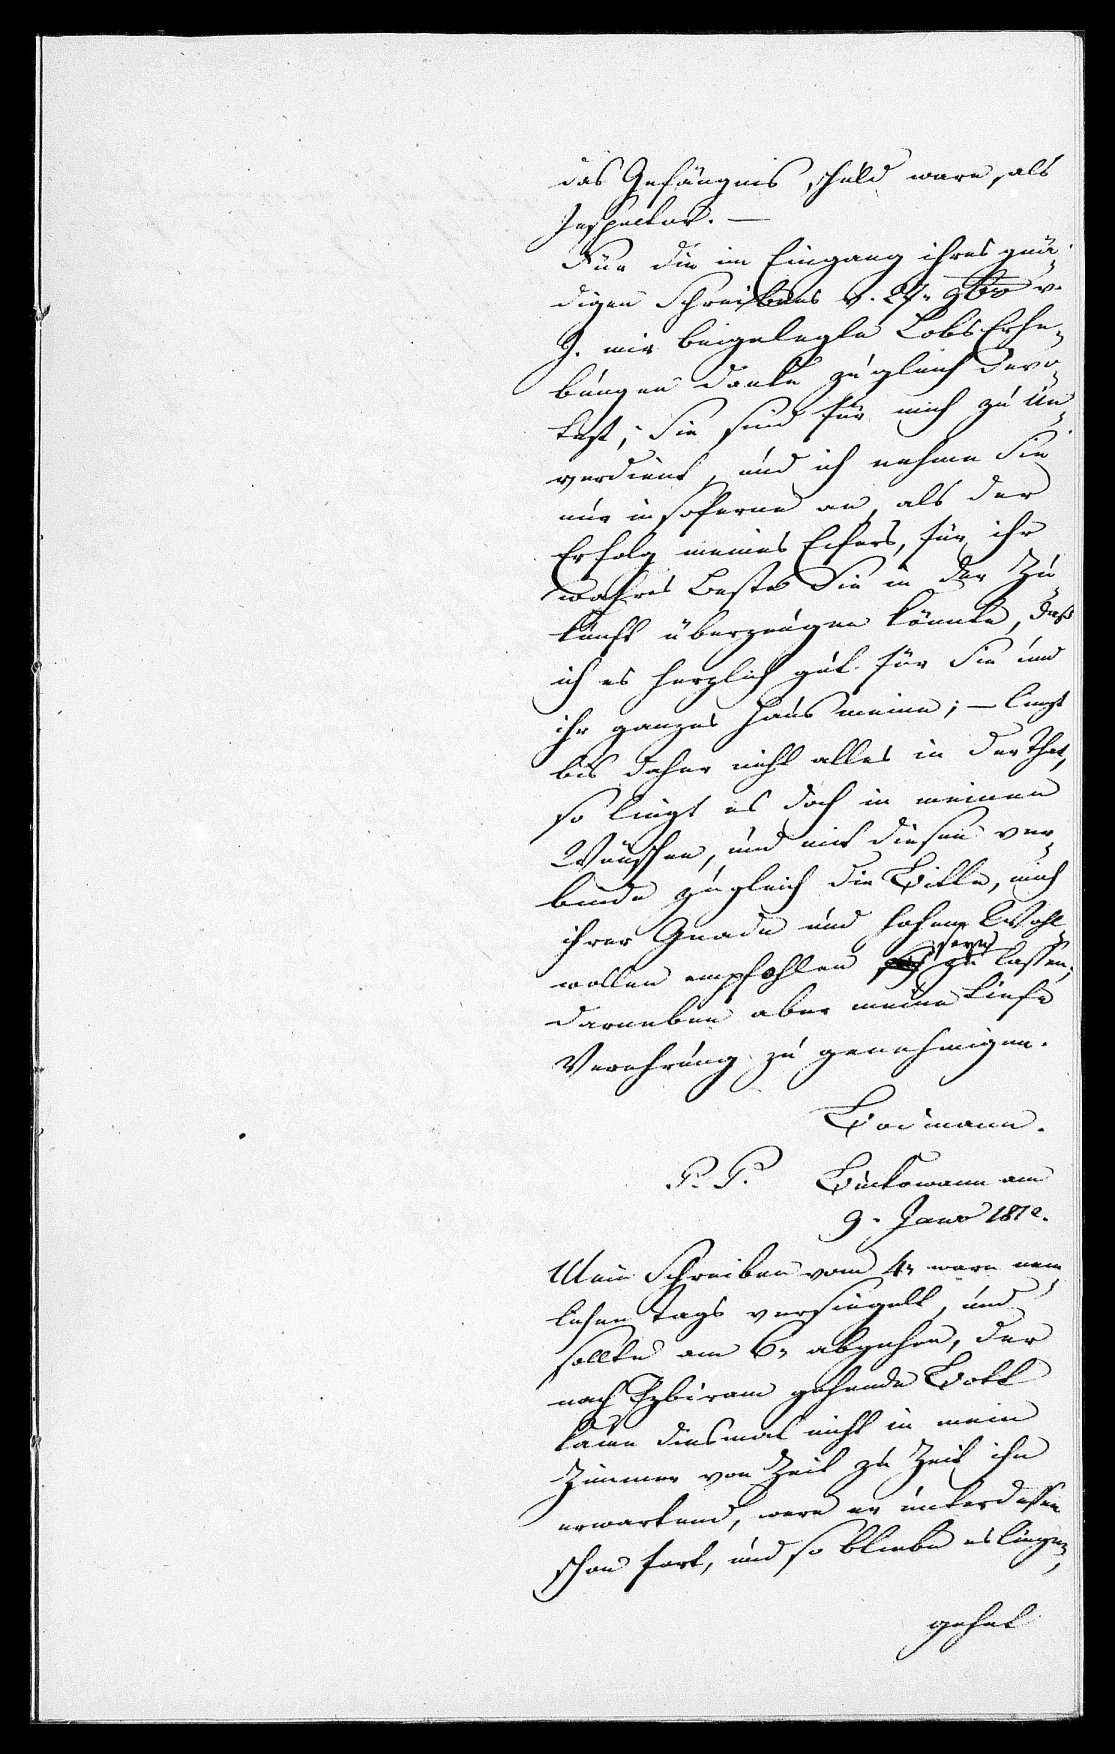 das Gefängnis schuld ware, als
Inspector. —
Für die im Eingang ihres gnä-
digen Schreibens v. 27. 9br v.
J. mir beigelegte Lobs Erhe-
bungen danke zugleich devo-
test; Sie sind für mich zu un-
verdient, und ich nehme Sie
nur insoferne an, als der
Erfolg meines Eifers, für ihr
wahres Bestes Sie in der Zu-
kunft überzeugen könnte, daß
ich es herzlich gut für Sie und
ihr ganzes Haus meine; — liegt
bis daher nicht alles in der That,
so liegt es doch in meinen
Wünschen, und mit diesen ver-
binde zugleich die Bitte, mich
ihrer Gnade und hohen Wohl-
wollen empfohlen seyn zu lassen;
darneben aber meine tiefe
Verehrung zu genehmigen.
Bodmann.
P. P. am
9. Janr 1812.
Mein Schreiben vom 4n ware nem-
lichen Tags versiegelt, und
sollte am 6n abgehen, der
nach gehende Bott
kame diesmal nicht in mein
Zimmer von Zeit zu Zeit ihn
erwartend, ware er unterdessen
schon fort, und so bliebe es liegen,
gehet